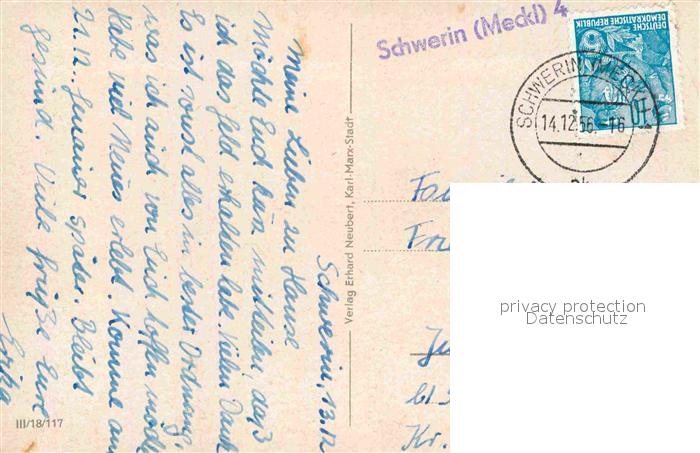 Schwerin, 13.12
Mein Lieben zu Hause
Möchte Euch kurz mitteilen, daß
ich das Geld erhalten habe. Vielen Dank
Es ist sonst alles in bester Ordnung,
was ich auch von Euch hoffen möchte
Habe viel Neues erlebt. Komme am
21.12. Genaueres später. Bleibt
gesund. Viele Grüße Eure
Erika
III/18/117
Verlag Erhard Neubert, Karl-Marx-Stadt
Schwerin (Meckl) 4
DEUTSCHE
DEMOKRATISCHE REPUBLIK
10
SCHWERIN (MECKL)
14.12.56 -16
Fa
Fr
bl
Kr.
privacy protection
Datenschutz